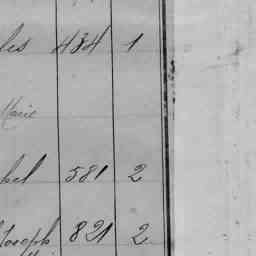 les 434 1
Marie
bel 581 2
Joseph 821 2